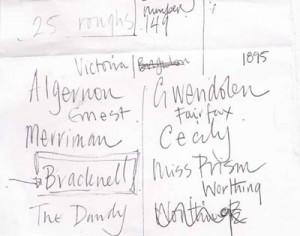 25 roughs
number
149
Victoria/
1895
Algernon
Ernest
Merriman
Bracknell
The Dandy
Gwendolen
Fairfax
Cecily
Miss Prism
Worthing
Worthing